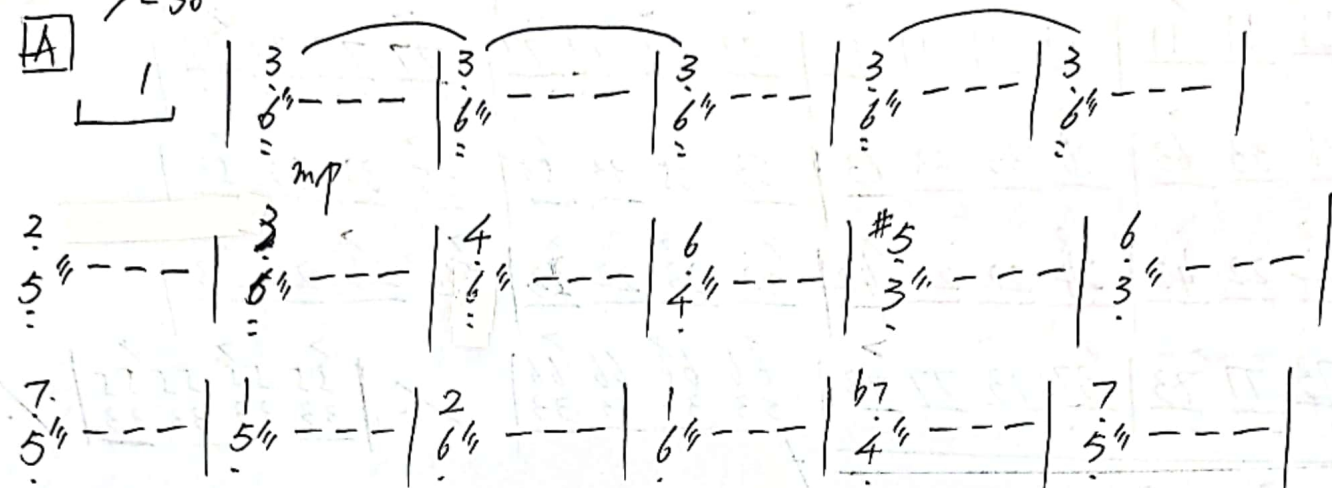 A 1 | 3 6 - - - | 3 6 - - - | 3 6 - - - | 3 6 - - - | 3 6 - - - |
mp
2 5 - - - | 3 6 - - - | 4 6 - - - | 6 4 - - - | #5 3 - - - | 6 3 - - - |
7 5 - - - | 1 5 - - - | 2 6 - - - | 1 6 - - - | b7 4 - - - | 7 5 - - - |